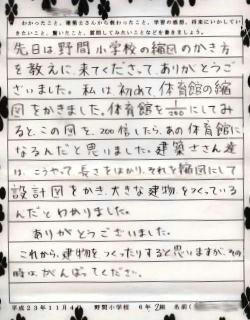 わかったこと、建築士さんから教わったこと、学習の感想、将来にいかして
きたいこと、驚いたこと、質問してみたいことなどを書きましょう。
先日は野間小学校の縮図のかき方
を教えに、来てくださって、ありがとうご
ざいました。私は、初めて、体育館の縮
図をかきました。体育館を1/200にしてみ
ると、この図を、200倍したら、あの体育館に
なるんだと思いました。建築士さん達
は、こうやって長さをはかり、それを縮図にして
設計図をかき、大きな建物をつくっている
んだとわかりました。
ありがとうございました。
これから、建物をつくったりすると思いますが、その
時は、がんばってください。
平成23年11月4日 野間小学校 6年2組 名前(